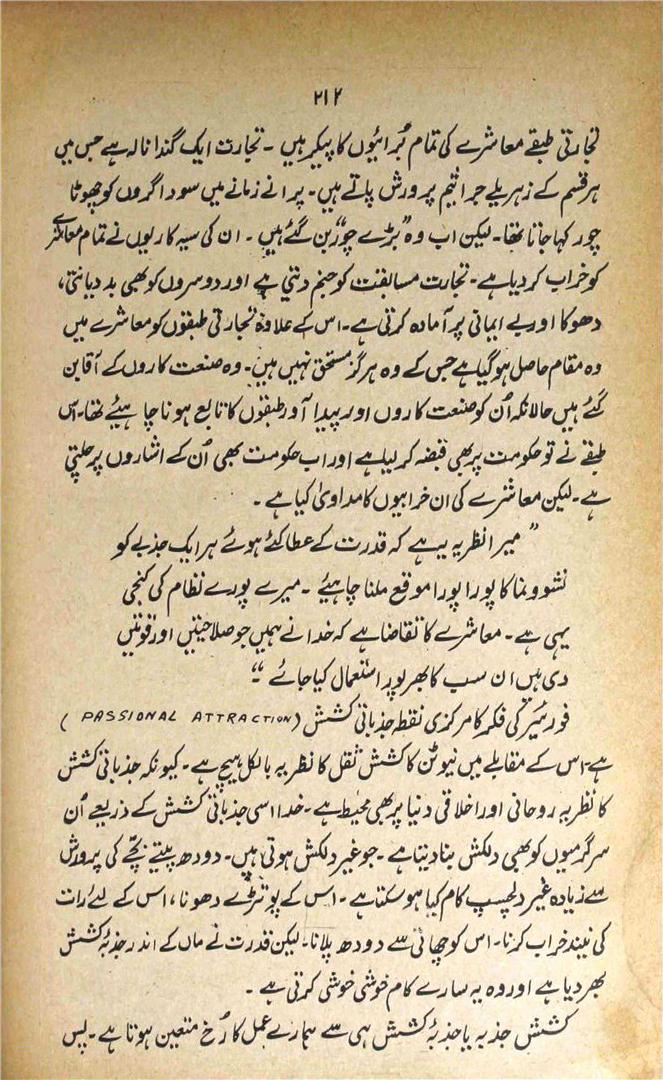 ۲۱۲
تجارتی طبقے معاشرے کی تمام بُرائیوں کا پیکر ہیں ۔ تجارت ایک گندا نالہ ہے جس میں
ہر قسم کے زہریلے جراثیم پرورش پاتے ہیں۔ پرانے زمانے میں سوداگروں کو چھوٹا
چور کہا جاتا تھا۔ لیکن اب وہ ”بڑے چور“ بن گئے ہیں ۔ ان کی سیہ کاریوں نے تمام معاشرے
کو خراب کر دیا ہے۔ تجارت مسابقت کو جنم دیتی ہے اور دوسروں کو بھی بد دیانتی،
دھوکا اور بے ایمانی پر آمادہ کرتی ہے۔ اس کے علاوہ تجارتی طبقوں کو معاشرے میں
وہ مقام حاصل ہو گیا ہے جس کے وہ ہرگز مستحق نہیں ہیں۔ وہ صنعت کاروں کے آقا بن
گئے ہیں حالانکہ اُن کو صنعت کاروں اور پیدا آور طبقوں کا تابع ہونا چاہیئے تھا۔ اس
طبقے نے تو حکومت پر بھی قبضہ کر لیا ہے اور اب حکومت بھی اُن کے اشاروں پر چلتی
ہے۔ لیکن معاشرے کی ان خرابیوں کا مداویٰ کیا ہے ۔
” میرا نظریہ یہ ہے کہ قدرت کے عطا کئے ہوئے ہر ایک جذبے کو
نشوونما کا پورا پورا موقع ملنا چاہیئے ۔ میرے پورے نظام کی کنجی
یہی ہے۔ معاشرے کا تقاضا ہے کہ خدا نے ہمیں جو صلاحیتیں اور قوتیں
دی ہیں ان سب کا بھرپور استعمال کیا جائے ۔“
فورئیر کی فکر کا مرکزی نقطہ جذباتی کشش (PASSIONAL ATTRACTION)
ہے۔ اس کے مقابلے میں نیوٹن کا کشش ثقل کا نظریہ بالکل ہیچ ہے۔ کیونکہ جذباتی کشش
کا نظریہ روحانی اور اخلاقی دنیا پر بھی محیط ہے۔ خدا اسی جذباتی کشش کے ذریعے اُن
سرگرمیوں کو بھی دلکش بنا دیتا ہے۔ جو غیر دلکش ہوتی ہیں۔ دودھ پیتے بچّے کی پرورش
سے زیادہ غیر دلچسپ کام کیا ہو سکتا ہے۔ اس کے پوتڑے دھونا، اس کے لئے رات
کی نیند خراب کرنا۔ اس کو چھاتی سے دودھ پلانا۔ لیکن قدرت نے ماں کے اندر جذبۂ کشش
بھر دیا ہے اور وہ یہ سارے کام خوشی خوشی کرتی ہے ۔
کشش جذبہ یا جذبۂ کشش ہی سے ہمارے عمل کا رُخ متعین ہوتا ہے۔ پس